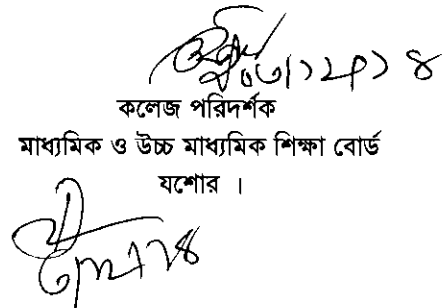 কলেজ পরিদর্শক
মাধ্যমিক ও উচ্চ মাধ্যমিক শিক্ষা বোর্ড
যশোর ।